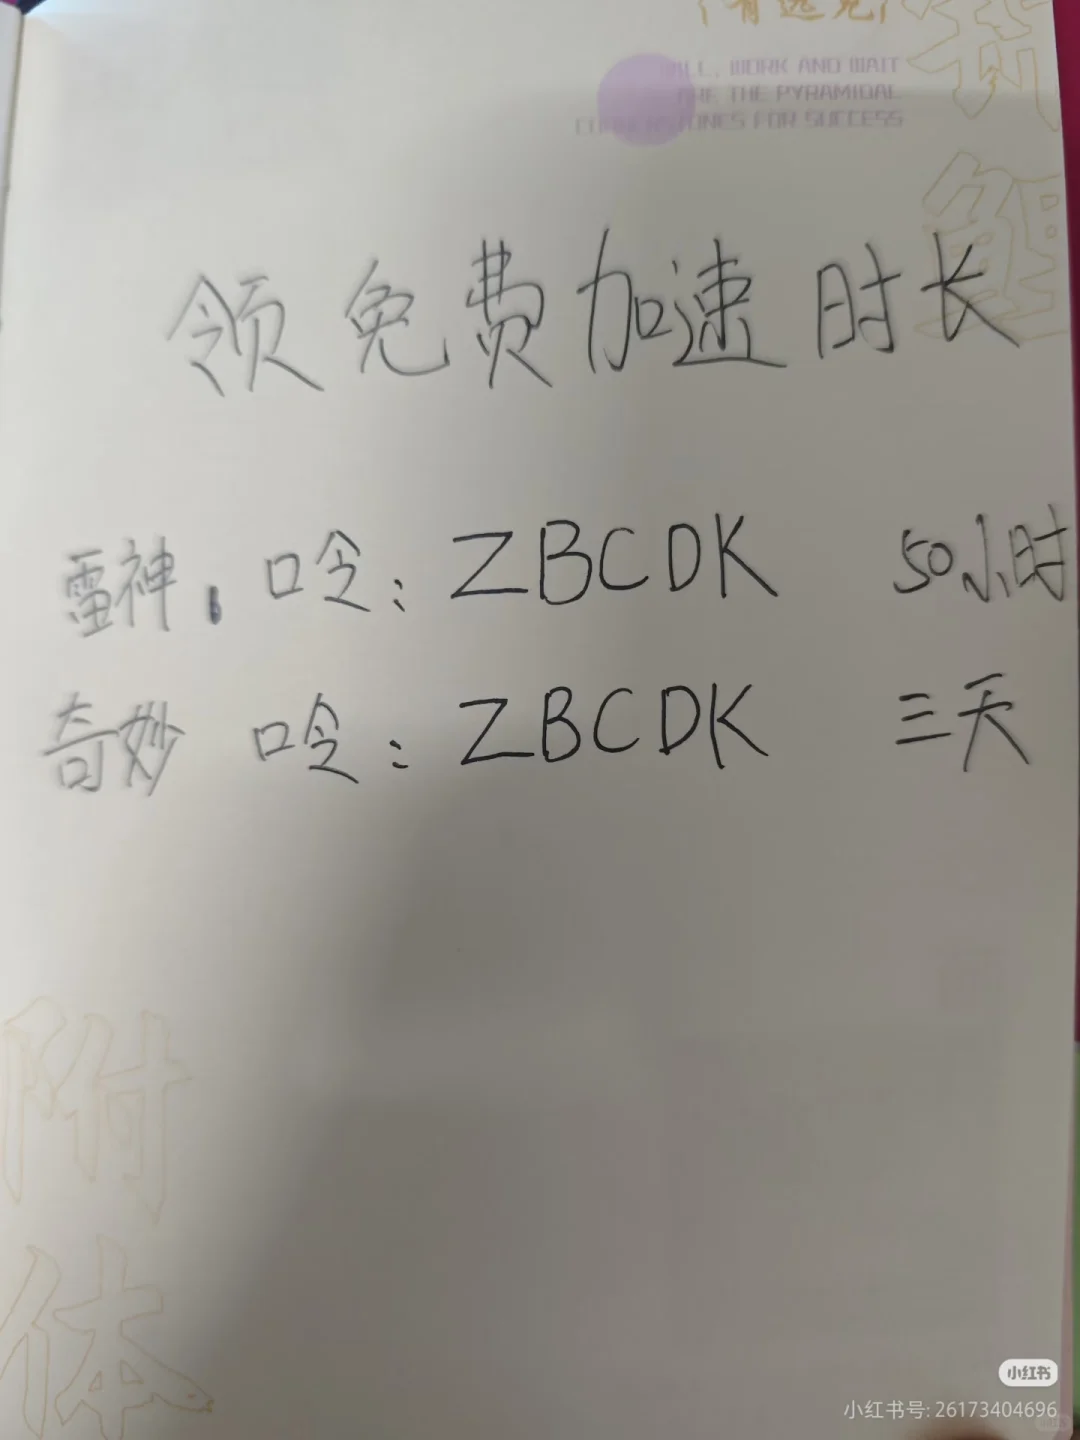 有远见
WORK AND WAIT
ARE THE PYRAMIDAL
FOR SUCCESS
锦
鲤
领免费加速时长
雷神 口令: ZBCDK 50小时
奇妙 口令: ZBCDK 三天
附
体
小红书
小红书号: 26173404696